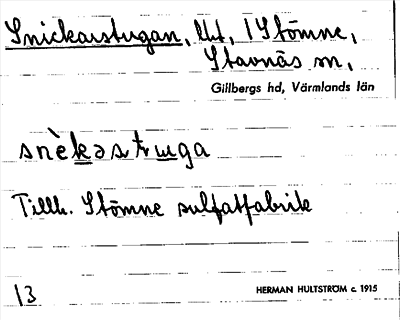 Snickarstugan, lht, 1 Stömne,
Stavnäs sn,
Gillbergs hd, Värmlands län
snèkastuga
Tillh. Stömne sulfatfabrik
13
HERMAN HULTSTRÖM c. 1915